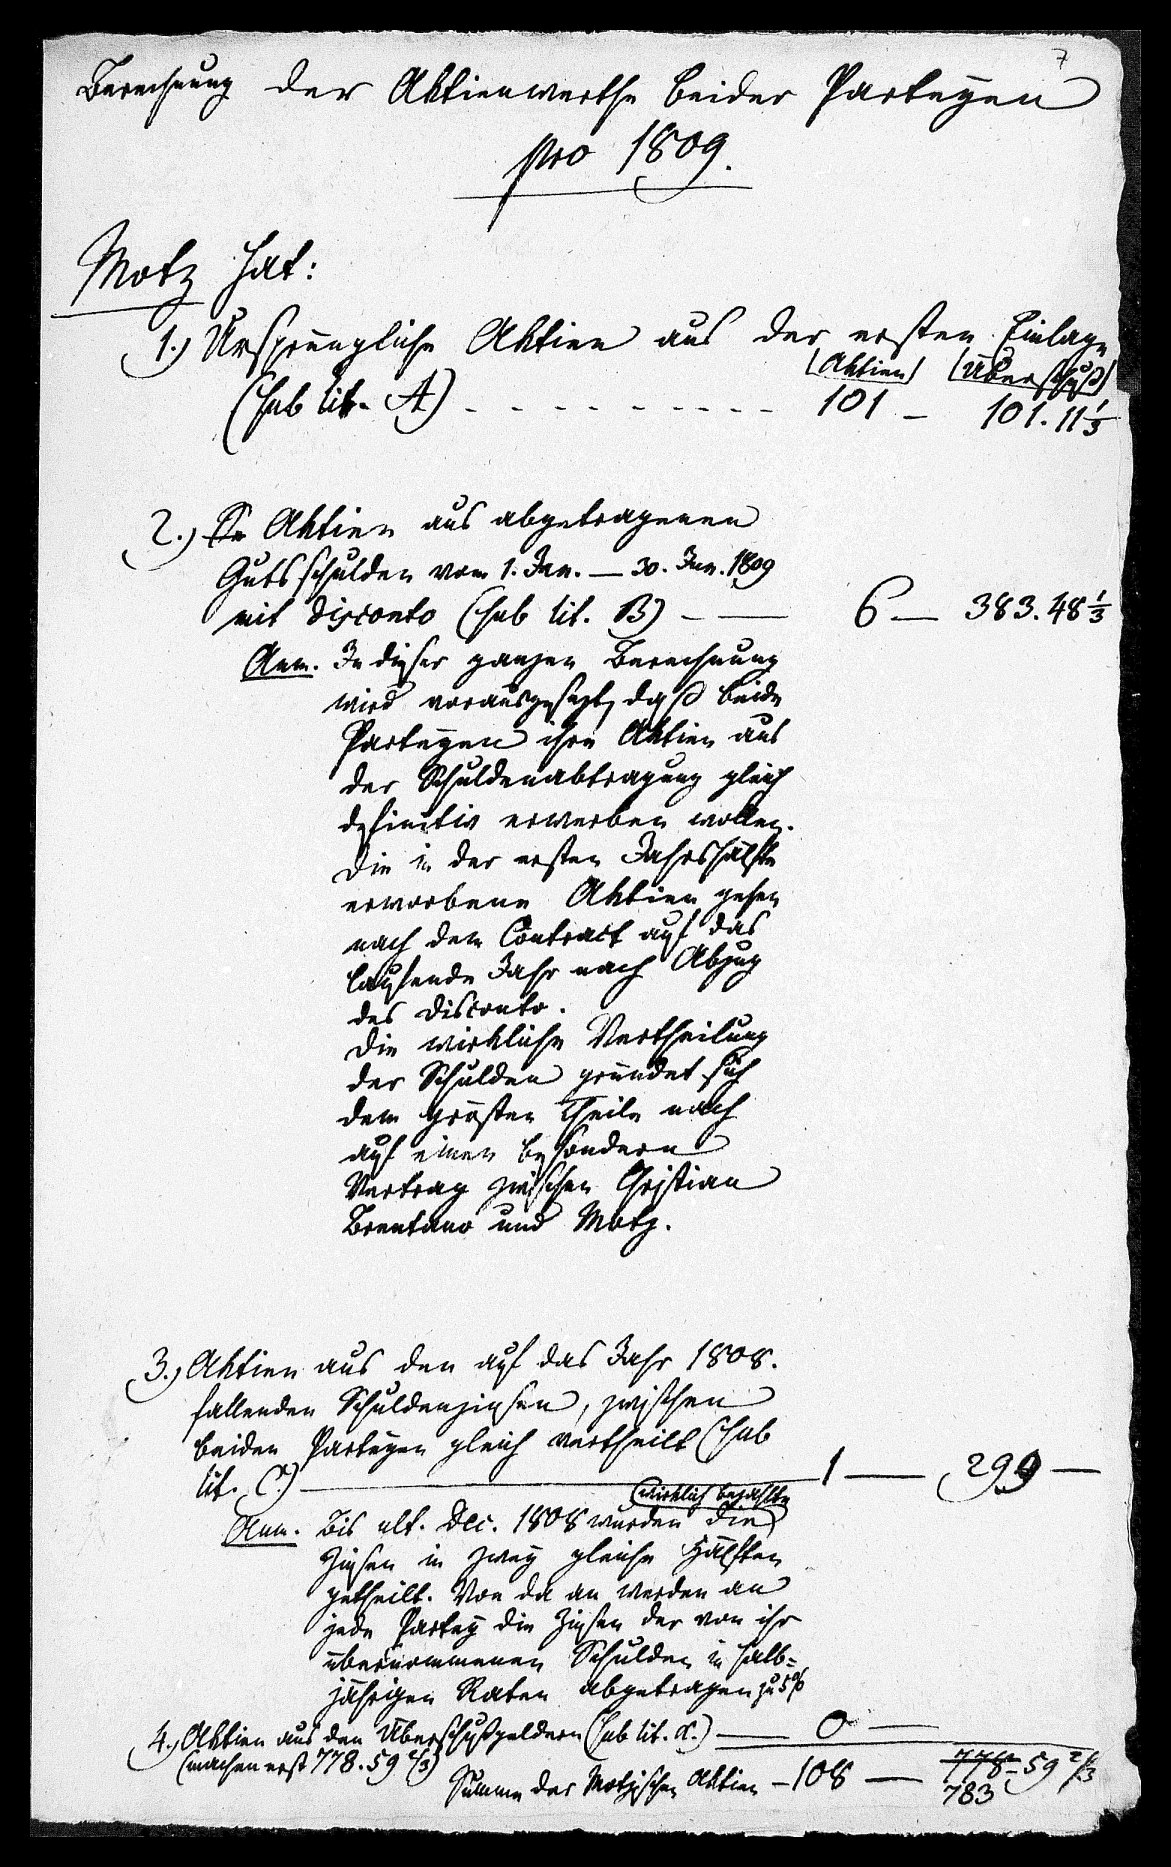 7
Berechnung der Aktienwerthe beider Partheyen
pro 1809.
Motz hat:
1.) Ursprüngliche Aktien aus der ersten Einlage
(Aktien) (Überschuß)
(sub lit. A) - - - - - - - - - 101 — 101. 11 1/3
2.) Aktien aus abgetragenen
Gutsschulden vom 1. Jan. — 30. Jun. 1809
mit Disconto (sub lit. B) - — 6 — 383. 48 1/3
Anm. In dieser ganzen Berechnung
wird vorausgesetzt, daß beide
Parteyen ihre Aktien aus
der Schuldenabtragung gleich
definitiv erwerben wollen.
Die in der ersten Jahrshälfte
erworbene Aktien gehen
nach dem Contract auf das
laufende Jahr nach Abzug
des Disconto.
Die wirkliche Vertheilung
der Schulden gründet sich
dem grösten Theile nach
auf einen besondern
Vertrag zwischen Christian
Brentano und Motz.
3.) Aktien aus den auf das Jahr 1808.
fallenden Schuldenzinsen, zwischen
beiden Parteyen gleich vertheilt (sub
lit. C.) — 1 — 299 —
(wirklich bezahlte
Anm. Bis ult. Dec. 1808 wurden die
Zinsen in zwey gleiche Hälften
getheilt. Von da an werden an
jede Partey die Zinsen der von ihr
übernommenen Schulden in halb=
jährigen Raten abgetragen zu 5%
4.) Aktien aus den Überschußgeldern (sub lit. α.) — 0 —
(machen erst 778. 59 2/3)
Summe der Motzischen Aktien — 108 — 778 - 59 2/3
783